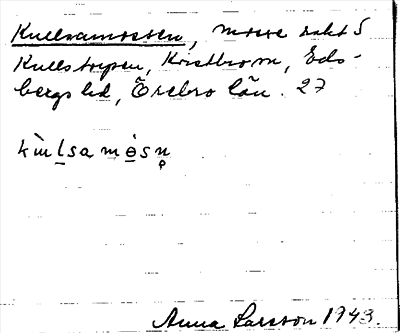 Kullsamossen, mosse rakt S
Kullstorpen, Kristbrom, Eds-
bergs hd, Örebro län. 27
kùlsamòsn̥
Anna Larsson 1943.